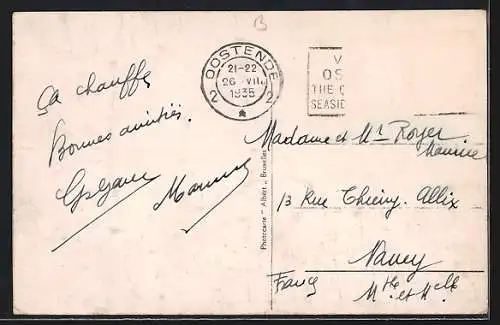 B
OOSTENDE
21-22
26 VII
1935
2 2
V
OS
THE
SEASID
Ça chauffe
Bonnes amitiés.
Madame et Mr Royer
Maurice
13 Rue Thiéry. Allix
Nancy
Mthe et Mlle
Photocarte "Albert" Bruxelles